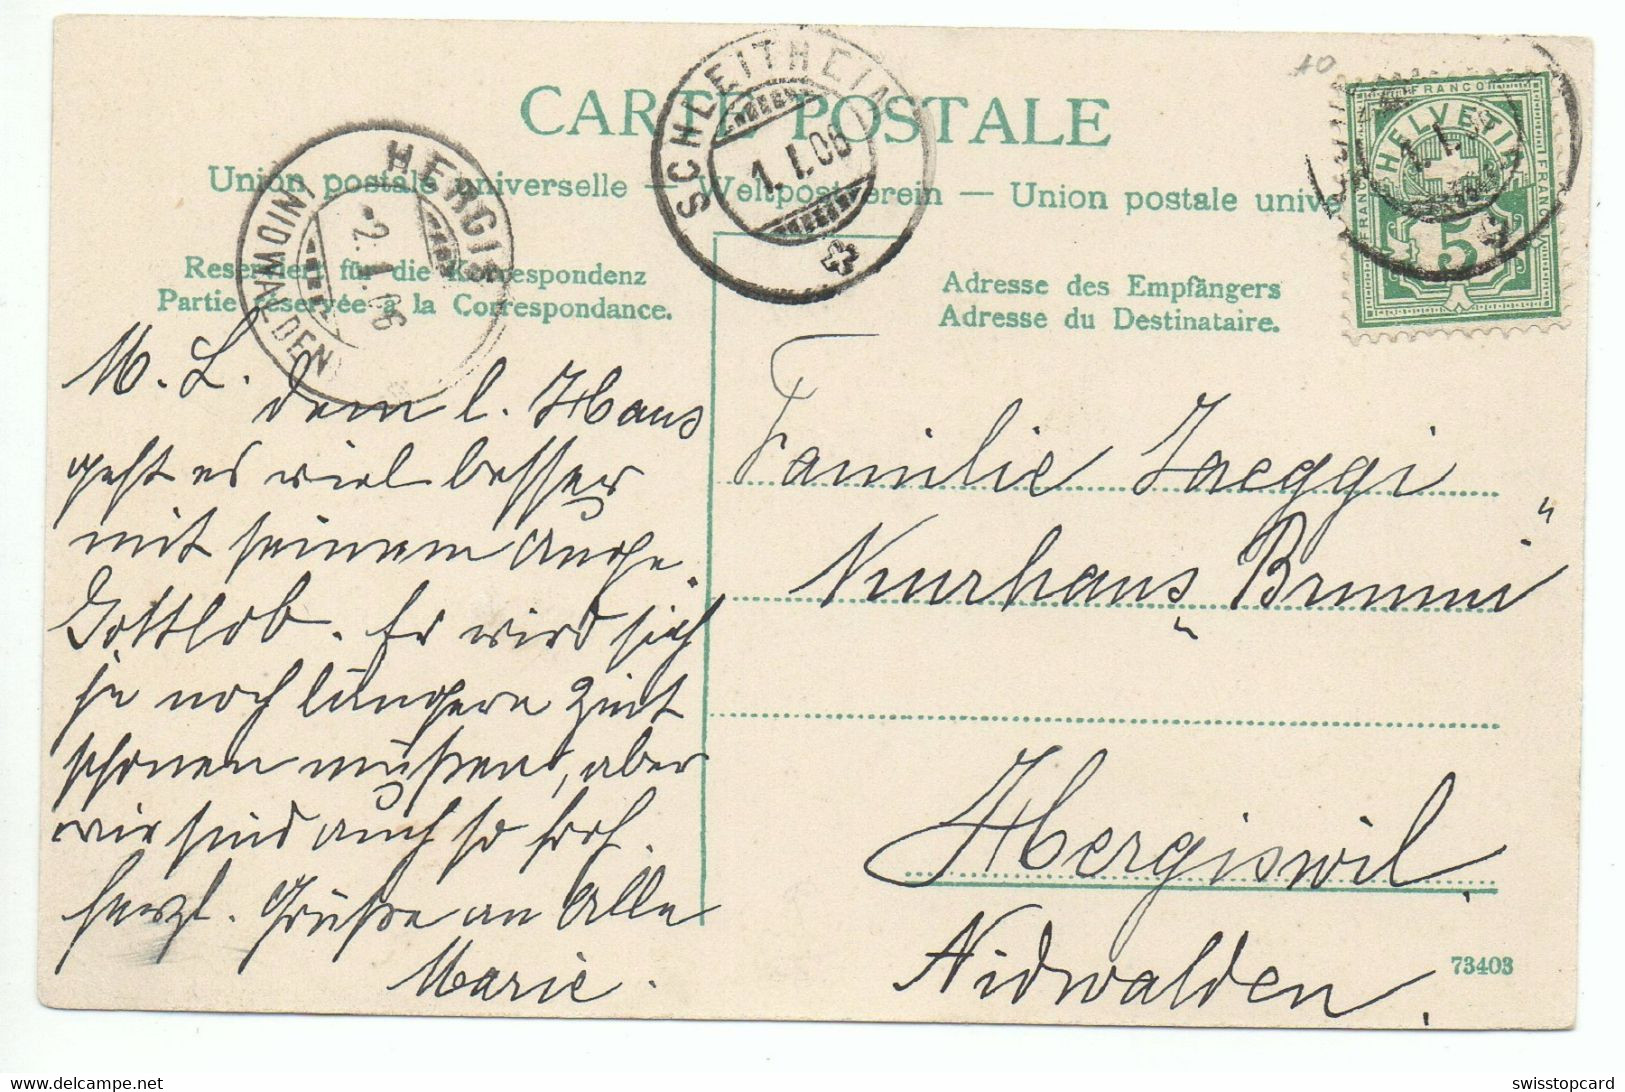 CARTE POSTALE
Union postale universelle — Weltpostverein — Union postale unive
Reserviert für die Korrespondenz
Partie réservée à la Correspondance.
Adresse des Empfängers
Adresse du Destinataire.
SCHLEITHEIM
1. I. 06
HERGIS
-2. I. 06
(NIDWALDEN)
FRANCO
HELVETIA
5
FRANCO
FRANCO
1. I.
M. L.
dem l. Hans
geht es viel besser
mit seinem Auge.
Gottlob. Er wird sich
ja noch längere Zeit
schonen müssen, aber
wir sind auch so froh.
herzl. Grüße an Alle
Marie.
Familie Jaeggi
"Brunni"
Hergiswil.
Nidwalden.
73403
swisstopcard